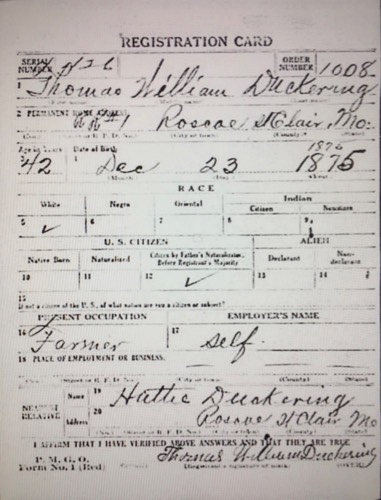 REGISTRATION CARD
SERIAL NUMBER 426 ORDER NUMBER 1008
1 Thomas William Duckering
2 PERMANENT HOME ADDRESS
RR #1 Roscoe St Clair, Mo.
Age in Years Date of Birth 1876
42 Dec 23 1875
(Month) (Day) (Year)
RACE
White Negro Oriental Indian
Citizen Noncitizen
5 ✓ 6 7 8 9
U. S. CITIZEN ALIEN
Native Born Naturalized Citizen by Father's Naturalization Before Registrant's Majority Declarant Non-declarant
10 11 12 ✓ 13 14
15
If not a citizen of the U. S., of what nation are you a citizen or subject?
PRESENT OCCUPATION EMPLOYER'S NAME
16 Farmer 17 self
18 PLACE OF EMPLOYMENT OR BUSINESS:
(No.) (Street or R. F. D. No.) (City or town) (County) (State)
NEAREST RELATIVE Name 19 Hattie Duckering
Address 20 Roscoe St Clair Mo
(No.) (Street or R. F. D. No.) (City or town) (County) (State)
I AFFIRM THAT I HAVE VERIFIED ABOVE ANSWERS AND THAT THEY ARE TRUE
P. M. G. O.
Form No. 1 (Red) Thomas William Duckering
(Registrant's signature or mark) (OVER)